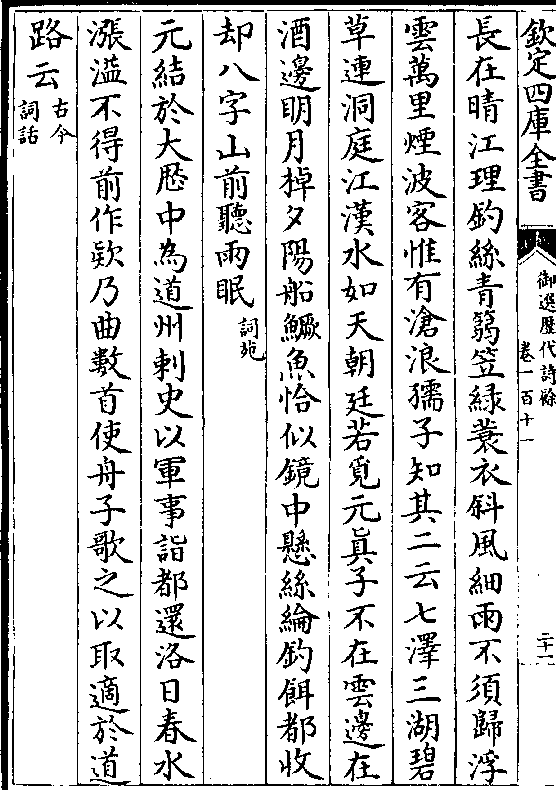 欽定四庫全書
御選歷代詩餘
卷一百十一
二十一
長在晴江理釣絲青篛笠緑蓑衣斜風細雨不須歸浮
雲萬里煙波客惟有滄浪孺子知其二云七澤三湖碧
草連洞庭江漢水如天朝廷若覓元眞子不在雲邊在
酒邊明月棹夕陽船鱖魚恰似鏡中懸絲綸釣餌都收
却八字山前聽雨眠詞苑
元結於大歴中為道州刺史以軍事詣都還洛日春水
漲溢不得前作欵乃曲數首使舟子歌之以取適於道
路云古今詞話